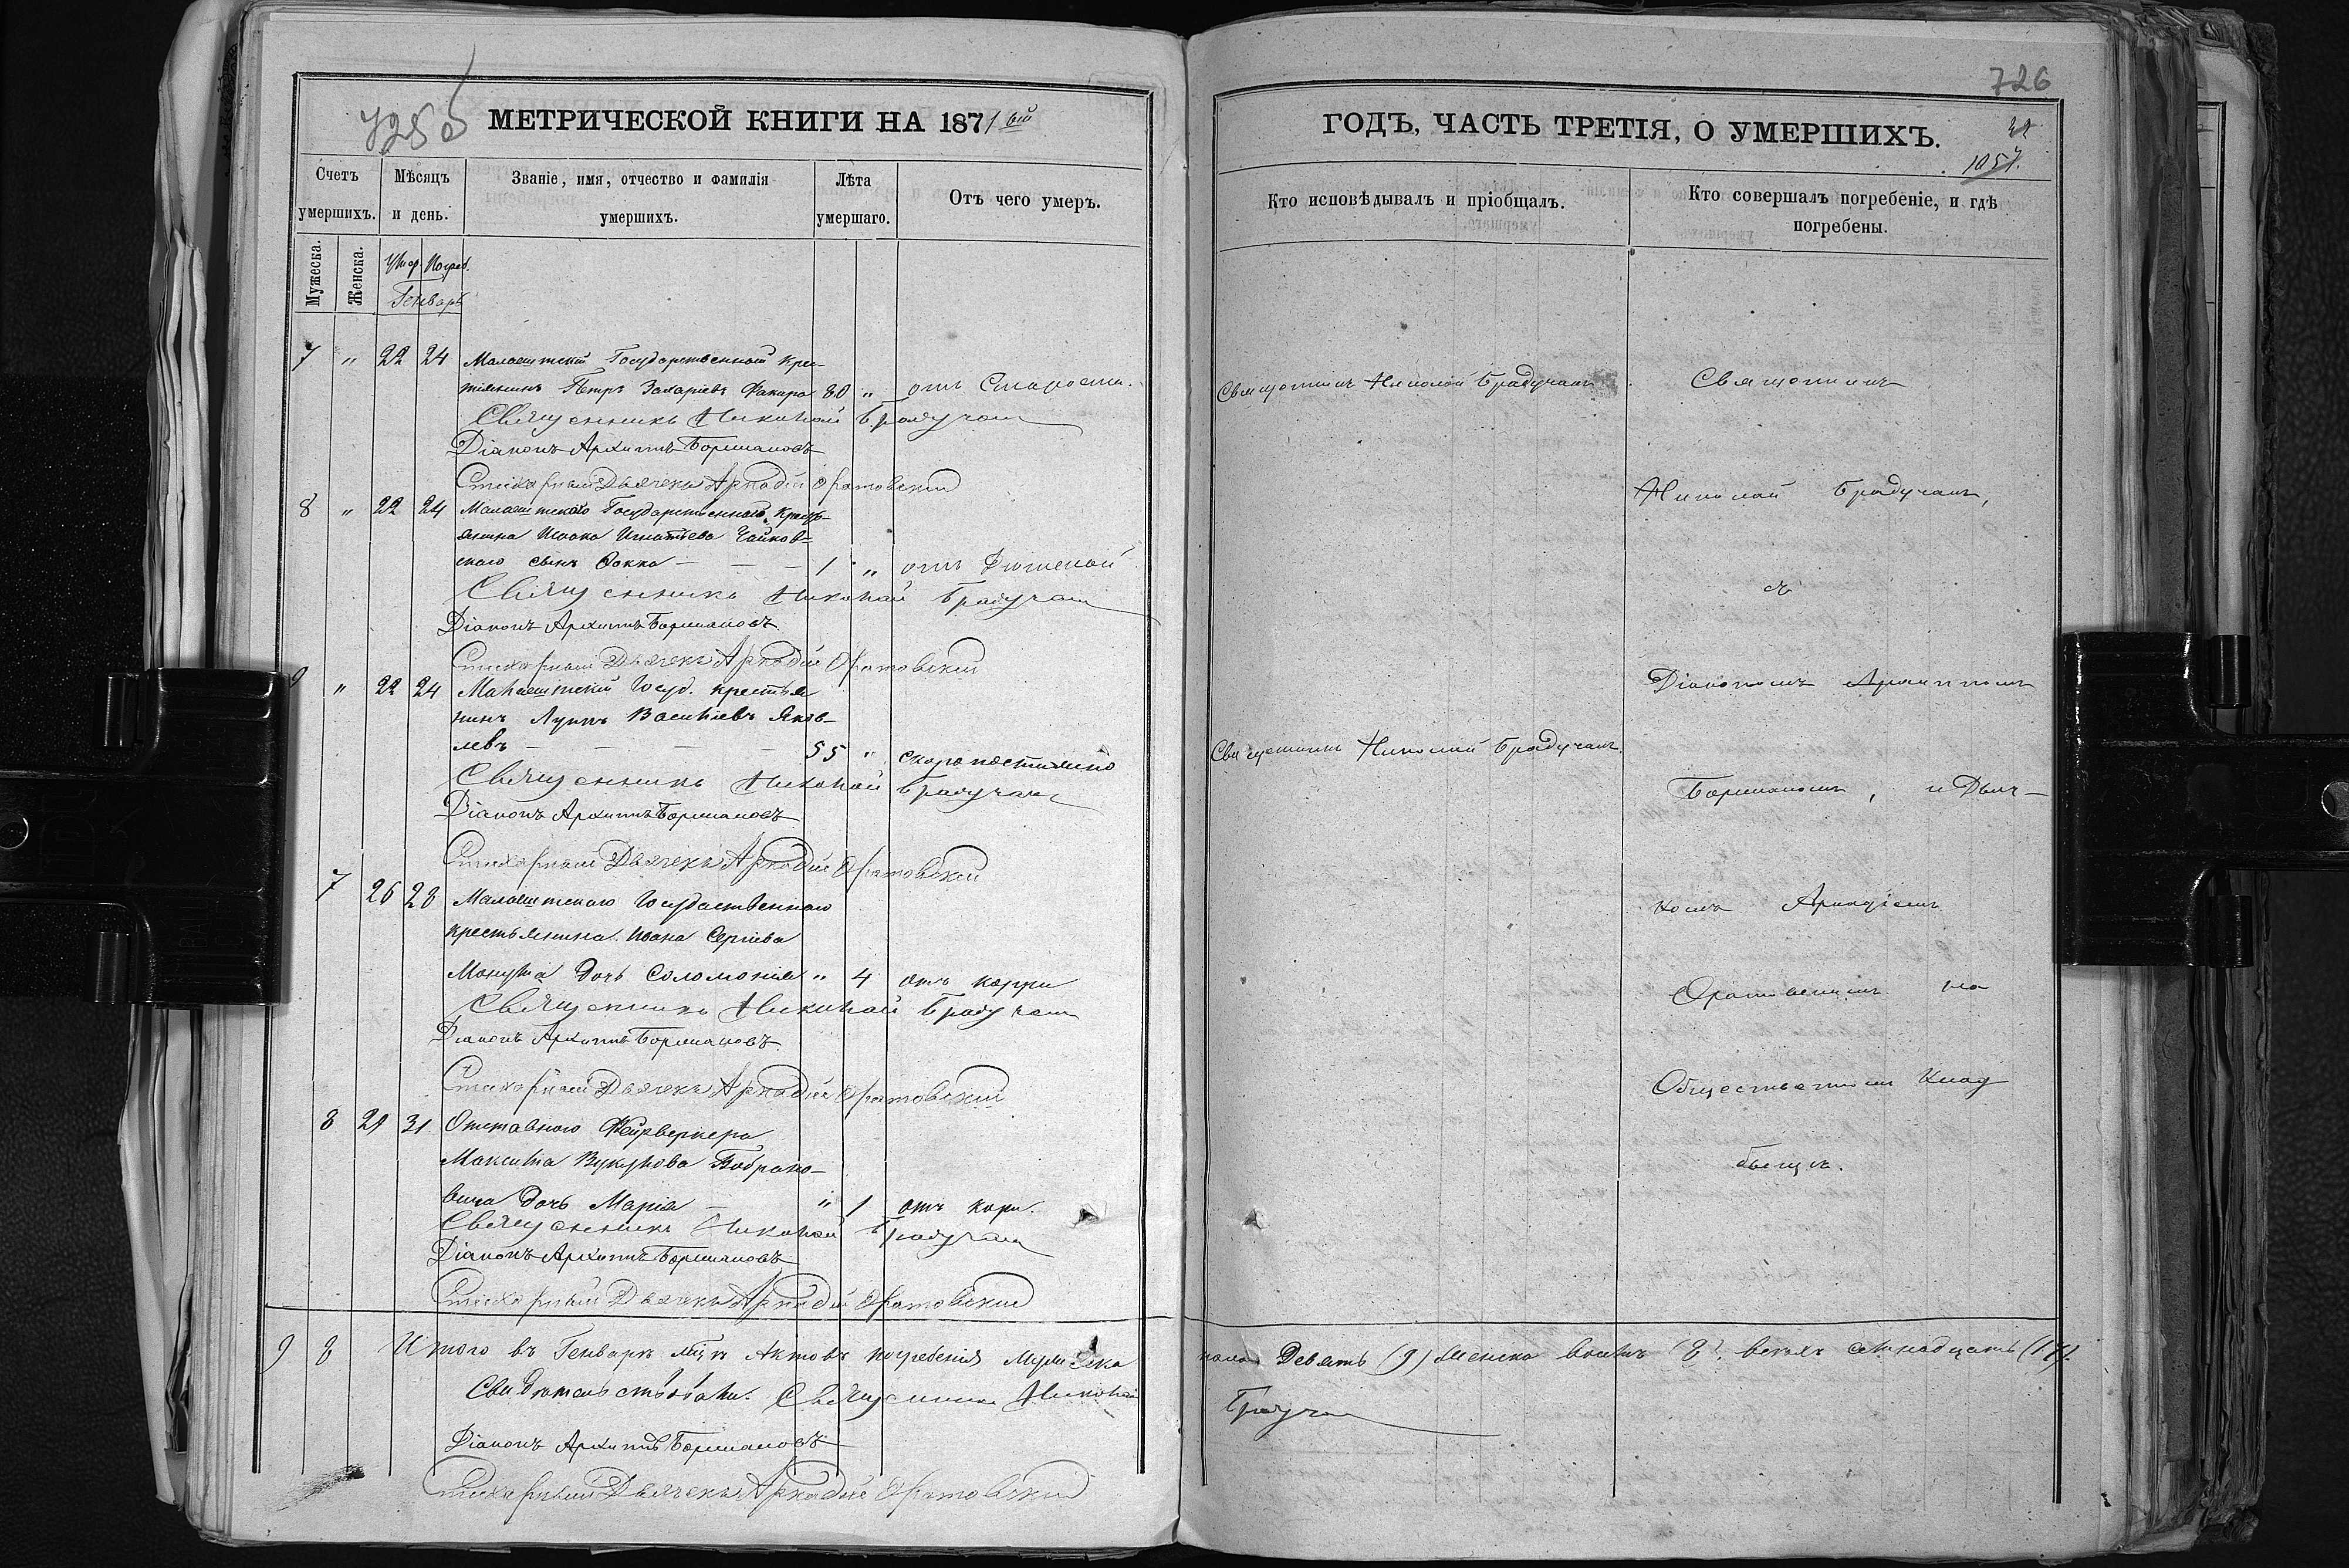 725 об
МЕТРИЧЕСКОЙ КНИГИ НА 1871ый
Счетъ умершихъ.
Мѣсяцъ и день.
Званіе, имя, отчество и фамилія умершихъ.
Лѣта умершаго.
Отъ чего умеръ.
Мужеска.
Женска.
Умер. Погреб.
Генварь
7 " 22 24 Малаештскій Государственный Крес-
тьянинъ Петръ Захаріевъ Факира 80 " отъ Старости.
Священникъ Николай Брадучан
Діаконъ Архиппъ Боршановъ
Стихарный Дьячекъ Аркадій Оратовский
8 " 22 24 Малаештскаго Государственнаго Кресть-
янина Исака Игнатьева Чайков-
скаго сынъ Фокка — — — 1 " отъ
Священникъ Николай Брадучан
Діаконъ Архиппъ Боршановъ.
Стихарный Дьячекъ Аркадій Оратовский
9 " 22 24 Малаештскій Госуд. крестья
нинъ Луппъ Василіевъ Яков-
левъ — — — — 55 " скоропостижно
Священникъ Николай Брадучан
Діаконъ Архиппъ Боршановъ
Стихарный Дьячекъ Аркадій Оратовский
7 26 28 Малаештскаго Государственнаго
крестьянина Ивана Сергіева
дочь Соломонія " 4 отъ корри
Священникъ Николай Брадучан
Діаконъ Архиппъ Боршановъ.
Стихарный Дьячекъ Аркадій Оратовский
8 29 31 Отставного Фейрверкера
Максима Вукулова Бобрако-
вича дочь Марія — " 1 отъ кори.
Священникъ Николай Брадучан
Діаконъ Архиппъ Боршановъ
Стихарный Дьячекъ Аркадій Оратовский
9 8 Итого въ Генварѣ м-цѣ Актовъ погребенія Мужеска
Свидѣтельствовали. Священникъ Николай
Діаконъ Архиппъ Боршановъ
Стихарный Дьячекъ Аркадій Оратовский
726
ГОДЪ, ЧАСТЬ ТРЕТІЯ, О УМЕРШИХЪ.
1057.
Кто исповѣдывалъ и пріобщалъ.
Кто совершалъ погребеніе, и гдѣ погребены.
Священникъ Николай Брадучанъ.
Священникъ
Николай Брадучанъ,
съ
Діакономъ Архиппомъ
Священникъ Николай Брадучанъ.
Боршановымъ, и Дьяч-
комъ Аркадіемъ
Оратовскимъ на
Общественномъ Клад
бищѣ.
пола Девять (9) Женска восемь (8). всѣхъ семнадцать (17).
Брадучан